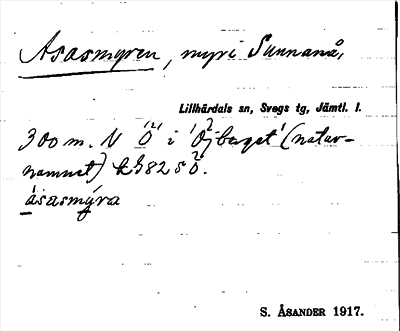 Åsasmyren, myr i Sunnanå,
Lillhärdals sn, Svegs tg, Jämtl. l.
300 m. N Ö i 'Öjberget' (natur-
namnet) k 982 s Ö.
åsasmýra
S. ÅSANDER 1917.